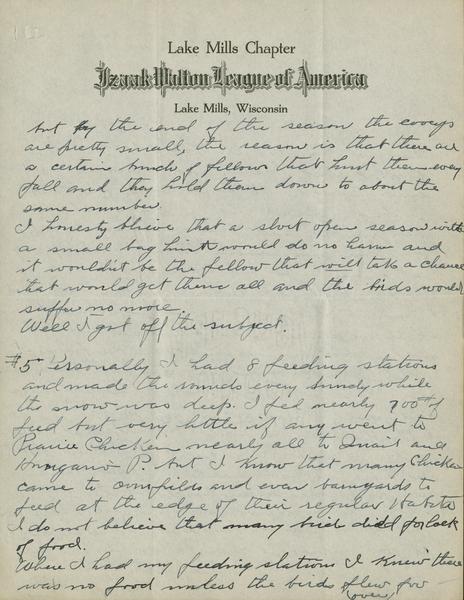 Lake Mills Chapter
Izaak Walton League of America
Lake Mills, Wisconsin
but by the end of the season the coveys
are pretty small, the reason is that there are
a certain bunch of fellows that hunt them every
fall and they hold them down to about the
same number.
I honesty blieve that a short open season with
a small bag limit would do no harm and
it wouldn't be the fellow that will take a chance
that would get them all and the birds would
suffer no more.
Well I got off the subject.
#5 Personally I had 8 feeding stations
and made the rounds every sunday while
the snow was deep. I fed nearly 700# of
feed but very little if any went to
Prairie Chicken nearly all to Quail and
Hungarian P. but I know that many Chicken
came to cornfields and even barnyards to
feed at the edge of their regular Habitat
I do not believe that many bird died for lack
of food.
Where I had my feeding stations I knew there
was no food unless the birds flew for
over